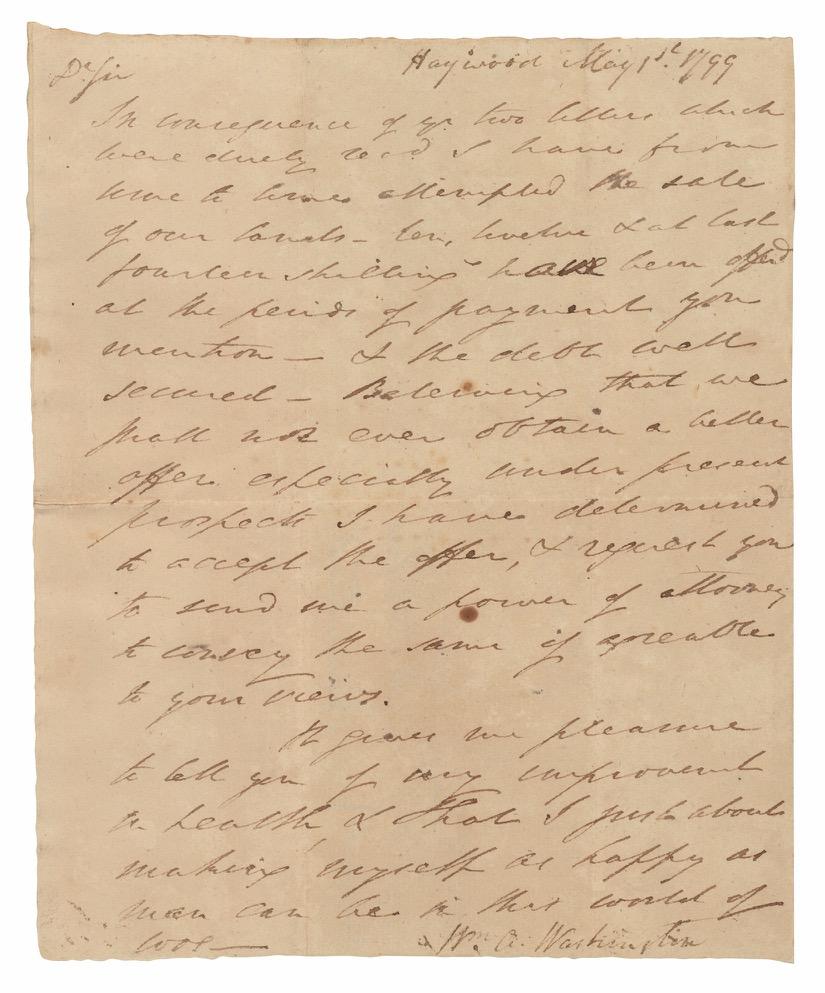 Haywood May 1st. 1799
Dr Sir
In consequence of yr two letters which
were duely recd I have from
time to time attempted the sale
of our lands – ten, twelve & at last
fourteen shillings have been offerd
at the periods of payment you
mention – & the debt well
secured – Beleiving that we
shall not ever obtain a better
offer especially under present
prospects I have determined
to accept the offer, & request you
to send me a power of attorney
to convey the same if agreable
to your views.
It gives me pleasure
to tell you of my improvement
in health, & that I just about
making myself as happy as
man can be in this world of
woe —
Wm. A. Washington